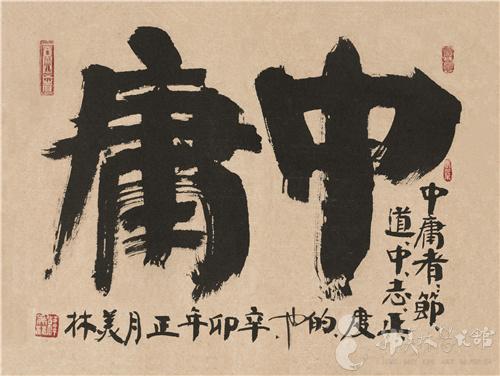 中庸
中庸者、節、
道、中、志、正、
度、的、也、辛卯年正月美林